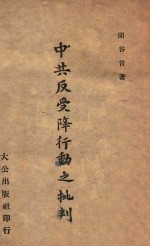 谷音著
中共反受降行動之批判
大公出版社印行